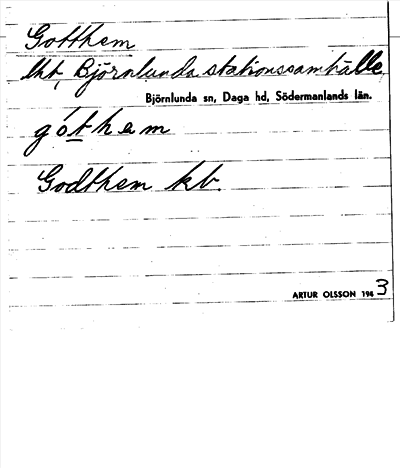 Gotthem
lht, Björnlunda stationssamhälle
Björnlunda sn, Daga hd, Södermanlands län.
gót hem
Godthem kb.
ARTUR OLSSON 1943